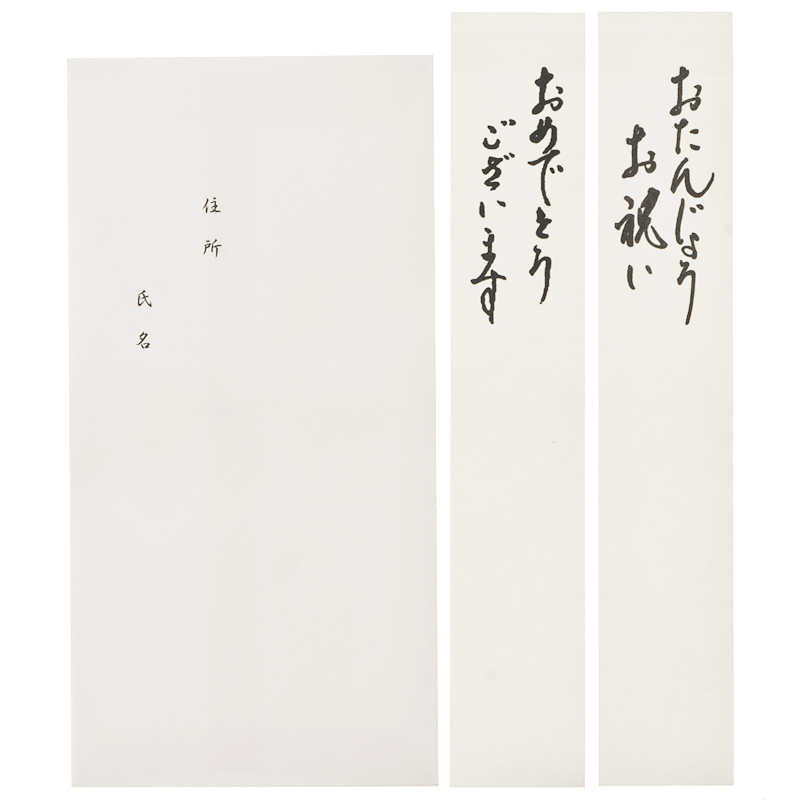 おたんじょう
お祝い
おめでとう
ございます
住所
氏名